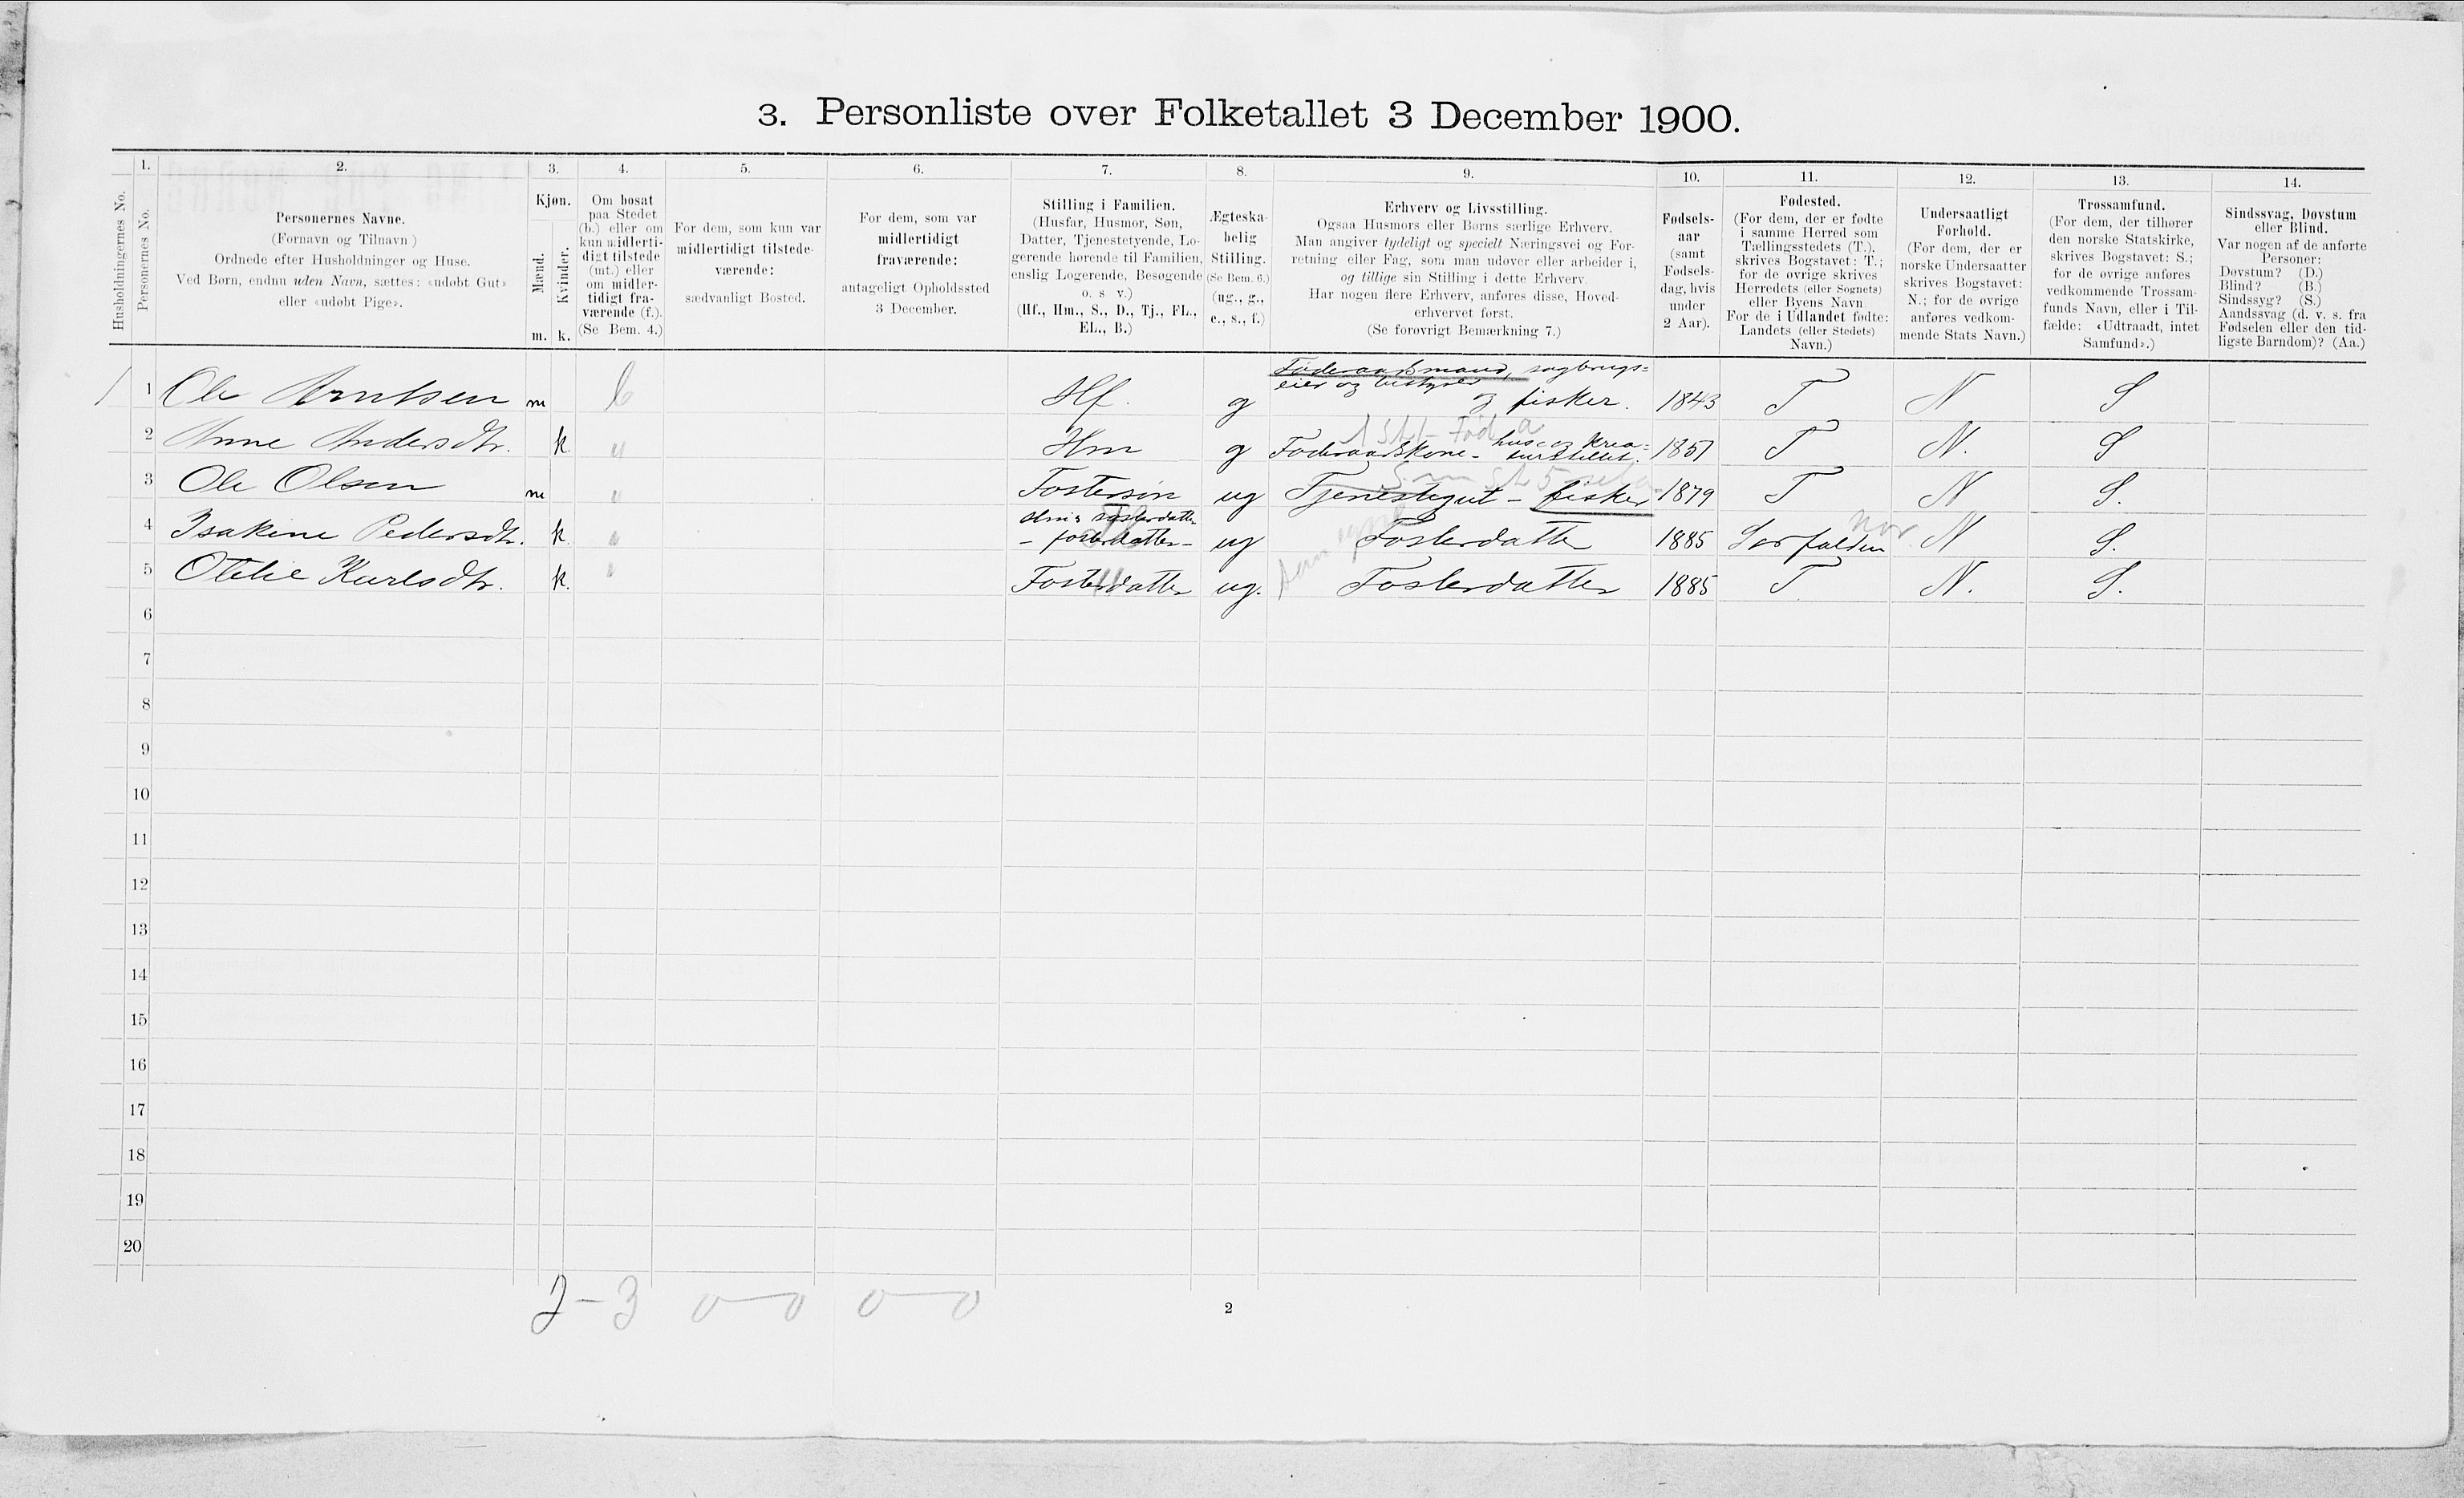 3. Personliste over Folketallet 3 December 1900.
Husholdningernes No.
1.
Personernes No.
2.
Personernes Navne.
(Fornavn og Tilnavn)
Ordnede efter Husholdninger og Huse.
Ved Børn, endnu uden Navn, sættes: «udøbt Gut»
eller «udøbt Pige».
3.
Kjøn.
Mænd.
Kvinder.
m. k.
4.
Om bosat
paa Stedet
(b.) eller om
kun midlerti-
digt tilstede
(mt.) eller
om midler-
tidigt fra-
værende (f.).
(Se Bem. 4.)
5.
For dem, som kun var
midlertidigt tilstede-
værende:
sædvanligt Bosted.
6.
For dem, som var
midlertidigt
fraværende:
antageligt Opholdssted
3 December.
7.
Stilling i Familien.
(Husfar, Husmor, Søn,
Datter, Tjenestetyende, Lo-
gerende hørende til Familien,
enslig Logerende, Besøgende
o. s v.)
(Hf., Hm., S., D., Tj., FL.,
EL., B.)
8.
Ægteska-
belig
Stilling.
(Se Bem. 6.)
(ug., g.,
e., s., f.)
9.
Erhverv og Livsstilling.
Ogsaa Husmors eller Børns særlige Erhverv.
Man angiver tydeligt og specielt Næringsvei og For-
retning eller Fag, som man udøver eller arbeider i,
og tillige sin Stilling i dette Erhverv.
Har nogen flere Erhverv, anføres disse, Hoved-
erhvervet først.
(Se forøvrigt Bemærkning 7.)
10.
Fødsels-
aar
(samt
Fødsels-
dag, hvis
under
2 Aar).
11.
Fødested.
(For dem, der er fødte
i samme Herred som
Tællingsstedets (T.),
skrives Bogstavet: T.;
for de øvrige skrives
Herredets (eller Sognets)
eller Byens Navn
For de i Udlandet fødte:
Landets (eller Stedets)
Navn.)
12.
Undersaatligt
Forhold.
(For dem, der er
norske Undersaatter
skrives Bogstavet:
N.; for de øvrige
anføres vedkom-
mende Stats Navn.)
13.
Trossamfund.
(For dem, der tilhører
den norske Statskirke,
skrives Bogstavet: S.;
for de øvrige anføres
vedkommende Trossam-
funds Navn, eller i Til-
fælde: «Udtraadt, intet
Samfund».)
14.
Sindssvag, Døvstum
eller Blind.
Var nogen af de anførte
Personer:
Døvstum? (D.)
Blind? (B.)
Sindssyg? (S.)
Aandssvag (d. v. s. fra
Fødselen eller den tid-
ligste Barndom)? (Aa.)
1 Ole Arntsen m b Hf. g Føderaadsmand, sagbrugs=
eier og bestyrer
og fisker. 1843 T N S
2 Anne Andersdtr. k " Hm g Føderaadskone - hus- og krea=
turstellet. 1857 T N. S
3 Ole Olsen m " Fostersøn ug Tjenestegut - fisker 1879 T N S.
4 Isakine Pedersdtr. k " Hm's Søsterdatter
- fosterdatter - ug Fosterdatter 1885 Sørfolden N S.
5 Otelie Karlsdtr. k. " Fosterdatter ug. Fosterdatter 1885 T N. S.
6
7
8
9
10
11
12
13
14
15
16
17
18
19
20
2 - 3 0 — 0 0 — 0
2